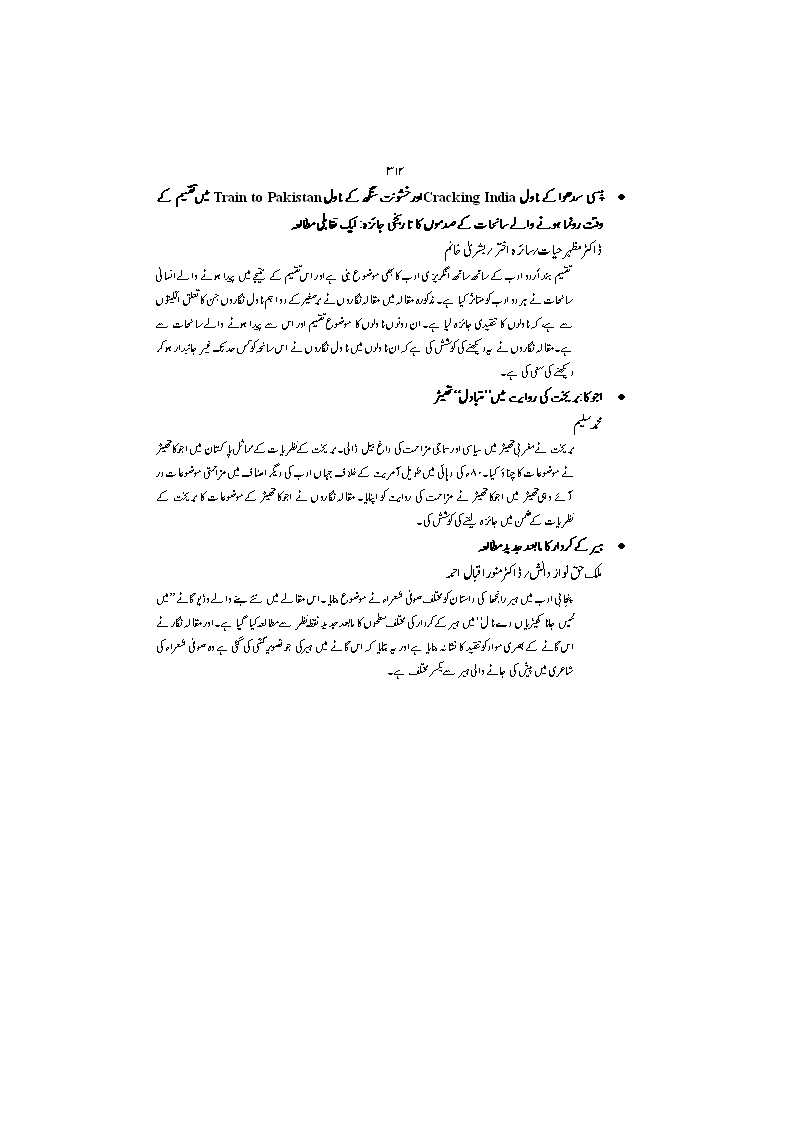 ۳۱۲
● بپسی سدھوا کے ناول Cracking India اور خشونت سنگھ کے ناول Train to Pakistan میں تقسیم کے
وقت رونما ہونے والے سانحات کے صدموں کا تاریخی جائزہ: ایک تقابلی مطالعہ
ڈاکٹر مظہر حیات/سائرہ اختر/بشریٰ خانم
تقسیم ہند اُردو ادب کے ساتھ ساتھ انگریزی ادب کا بھی موضوع بنی ہے اور اس تقسیم کے نتیجے میں پیدا ہونے والے انسانی
سانحات نے ہر دو ادب کو متاثر کیا ہے۔ مذکورہ مقالہ میں مقالہ نگاروں نے برصغیر کے دو اہم ناول نگاروں جن کا تعلق اقلیتوں
سے ہے کہ ناولوں کا تنقیدی جائزہ لیا ہے۔ ان دونوں ناولوں کا موضوع تقسیم اور اس سے پیدا ہونے والے سانحات سے
ہے۔ مقالہ نگاروں نے یہ دیکھنے کی کوشش کی ہے کہ ان ناولوں میں ناول نگاروں نے اس سانحہ کو کس حد تک غیر جانبدار ہو کر
دیکھنے کی سعی کی ہے۔
● اجوکا: بریخت کی روایت میں ”متبادل“ تھیٹر
محمد سلیم
بریخت نے مغربی تھیٹر میں سیاسی اور سماجی مزاحمت کی داغ بیل ڈالی۔ بریخت کے نظریات کے مماثل پاکستان میں اجوکا تھیٹر
نے موضوعات کا چناؤ کیا۔ ۸۰ء کی دہائی میں طویل آمریت کے خلاف جہاں ادب کی دیگر اصناف میں مزاحمتی موضوعات در
آئے وہی تھیٹر میں اجوکا تھیٹر نے مزاحمت کی روایت کو اپنایا۔ مقالہ نگاروں نے اجوکا تھیٹر کے موضوعات کا بریخت کے
نظریات کے ضمن میں جائزہ لینے کی کوشش کی۔
● ہیر کے کردار کا مابعد جدید مطالعہ
ملک حق نواز دانش/ ڈاکٹر منور اقبال احمد
پنجابی ادب میں ہیر رانجھا کی داستان کو مختلف صوفی شعراء نے موضوع بنایا۔ اس مقالے میں نئے بنے والے وڈیو گانے ”میں
نہیں جانا کھیڑیاں دے نال“ میں ہیر کے کردار کی مختلف سطحوں کا مابعد جدید نقطہ نظر سے مطالعہ کیا گیا ہے۔ اور مقالہ نگار نے
اس گانے کے بصری مواد کو تنقید کا نشانہ بنایا ہے اور یہ بتایا کہ اس گانے میں ہیر کی جو تصویر کشی کی گئی ہے وہ صوفی شعراء کی
شاعری میں پیش کی جانے والی ہیر سے یکسر مختلف ہے۔